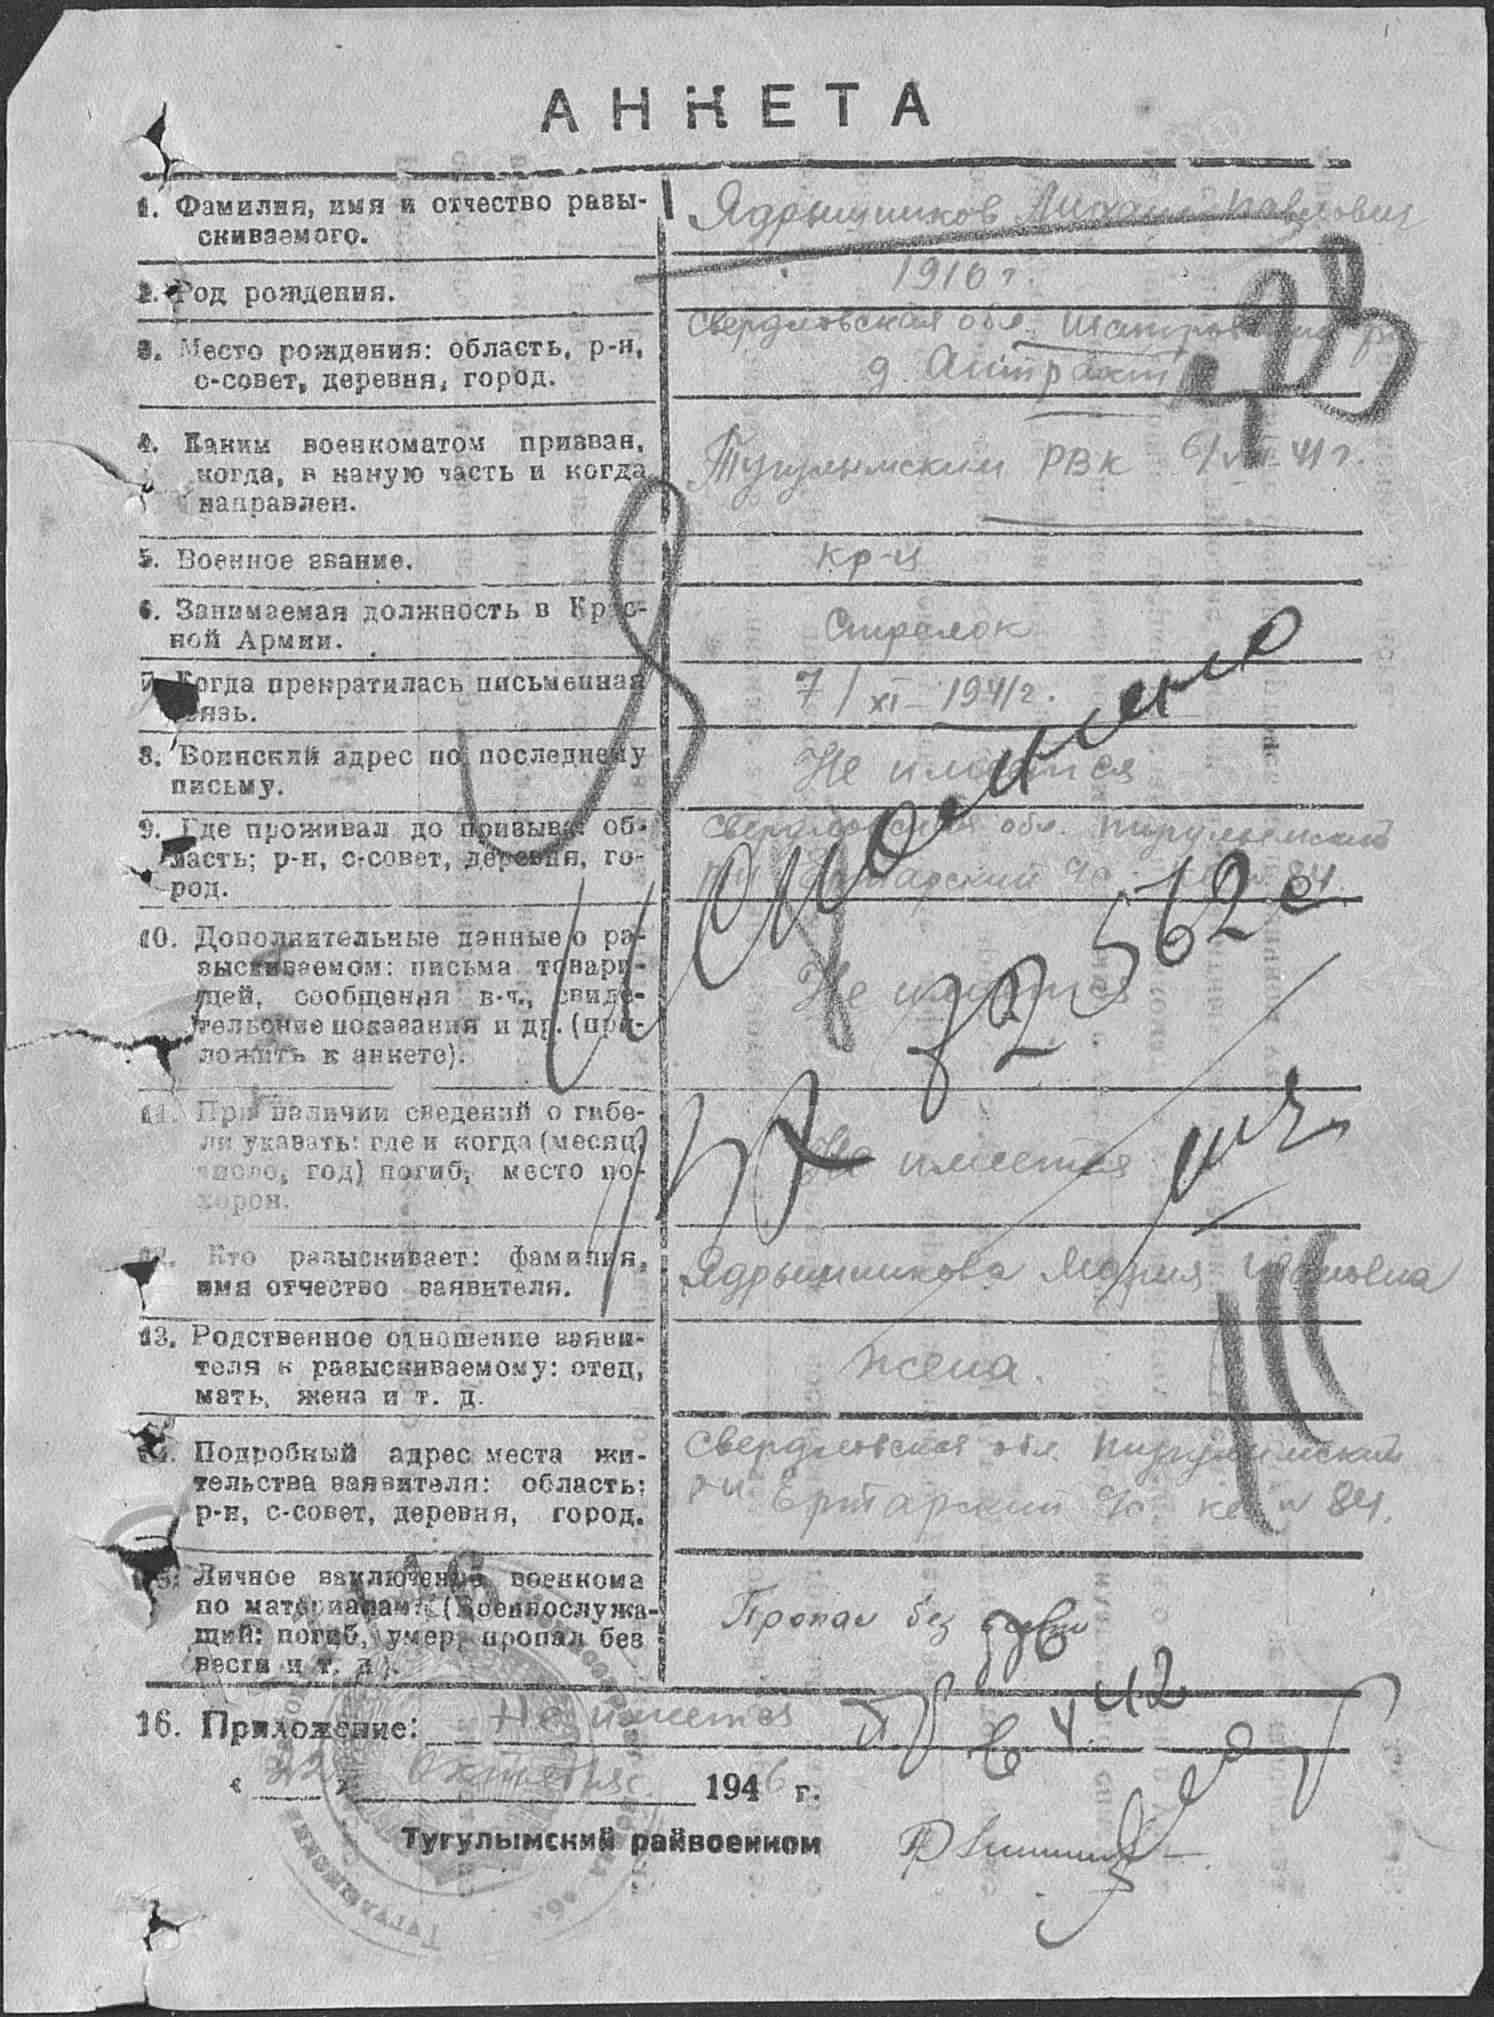 АНКЕТА
1. Фамилия, имя и отчество разы-
скиваемого.
Ядрышников Михаил Павлович
2. Год рождения.
1910 г.
3. Место рождения: область, р-н,
с-совет, деревня, город.
Свердловская обл. Шатровский р-н
д.
4. Каким военкоматом призван,
когда, в какую часть и когда
направлен.
Тугулымским РВК 6/VIII 41 г.
5. Военное звание.
кр-ц
6. Занимаемая должность в Крас-
ной Армии.
Стрелок
7. Когда прекратилась письменная
связь.
7/XI-1941г.
8. Воинский адрес по последнему
письму.
Не имеется
9. Где проживал до призыва: об-
ласть; р-н, с-совет, деревня, го-
род.
Свердловская обл. Тугулымский
р-н Ертарский 84.
10. Дополнительные данные о ра-
зыскиваемом: письма товари-
щей, сообщения в-ч., свиде-
тельские показания и др. (при-
ложить к анкете).
Не имеется
11. При наличии сведений о гибе-
ли указать: где и когда (месяц,
число, год) погиб, место по-
хорон.
Не имеется
12. Кто разыскивает: фамилия,
имя отчество заявителя.
Ядрышникова Мария Ивановна
13. Родственное отношение заяви-
теля к разыскиваемому: отец,
мать, жена и т. д.
жена.
14. Подробный адрес места жи-
тельства заявителя: область;
р-н, с-совет, деревня, город.
Свердловская обл. Тугулымский
р-н Ертарский 84.
15. Личное заключение военкома
по материалам: (Военнослужа-
щий: погиб, умер, пропал без
вести и т. д.).
Пропал без вести
42
16. Приложение: Не имеется
« 22 » Октября 1946 г.
Тугулымский райвоенком